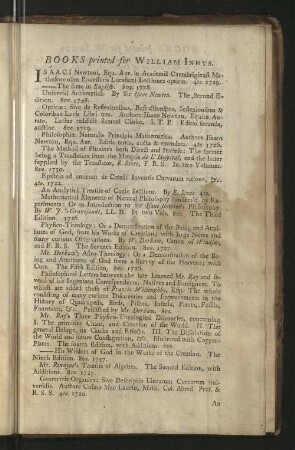 BOOKS printed for WILLIAM INNYS.
ISAACI Newtoni, Eqq. Aur. in Academiâ Cantabrigiensi Ma-
theseos olim Professoris Lucasiani Lectiones opticæ. 4to. 1729.
——The same in English. 8vo. 1728.
Universal Arithmetick. By Sir Isaac Newton. The Second E-
dition. 8vo. 1728.
Optice: Sive de Reflexionibus, Refractionibus, Inflexionibus &
Coloribus Lucis Libri tres. Authore Isaaco Newton, Equite Au-
rato. Latine reddidit Samuel Clarke, S. T. P. Editio secunda,
auctior. 8vo. 1719.
Philosophiæ Naturalis Principia Mathematica. Autore Isaaco
Newton, Eqq. Aur. Editio tertia, aucta & emendata. 4to. 1726.
The Method of Fluxions both Direct and Inverse: The former
being a Translation from the Marquis de l' Hospital, and the latter
supplied by the Translator, E. Stone, F. R. S. In two Volumes.
8vo. 1730.
Epistola ad amicum de Cotesii Inventis Curvarum ratione, &c.
4to. 1722.
An Analytick Treatise of Conic Sections. By R. Steel. 4to.
Mathematical Elements of Natural Philosophy confirm'd by Ex-
periments: Or an Introduction to Sir Isaac Newton's Philosophy.
By W. J. 's Gravesande, LL. D. In two Vols, 8vo. The Third
Edition. 1726.
Physico-Theology: Or a Demonstration of the Being and Attri-
butes of God, from his Works of Creation; with large Notes and
many curious Observations. By W. Derham, Canon of Windsor,
and F. R. S. The seventh Edition. 8vo. 1727.
Mr. Derham's Astro-Theology: Or a Demonstration of the Be-
ing and Attributes of God from a Survey of the Heavens; with
Cuts. The Fifth Edition, 8vo. 1726.
Philosophical Letters between the late Learned Mr. Ray and se-
veral of his Ingenious Correspondents, Natives and Foreigners. To
which are added those of Francis Willoughby, Esq; The whole
consisting of many curious Discoveries and Improvements in the
History of Quadrupeds, Birds, Fishes, Insects, Plants, Fossils,
Fountains, &c. Published by Mr. Derham. 8vo.
Mr. Ray's Three Physico-Theological Discourses, concerning
I. The primitive Chaos, and Creation of the World. II. The
general Deluge, its Causes and Effects. III. The Dissolution of
the World and future Conflagration, &c. Illustrated with Copper-
Plates. The fourth Edition, with Additions. 8vo.
——His Wisdom of God in the Works of the Creation. The
Ninth Edition. 8vo. 1727.
Mr. Ronayne's Treatise of Algebra. The Second Edition, with
Additions. 8vo. 1727.
Geometria Organica: Sive Descriptio Linearum Curvarum uni-
versalis. Authore Colino Mac Laurin, Math. Col. Abred. Prof. &
R. S. S. 4to. 1720.
An